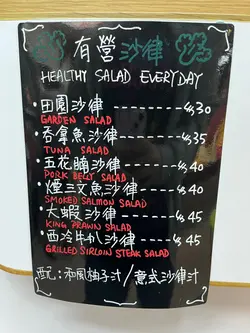 有營沙律
HEALTHY SALAD EVERYDAY
田園沙律 -------------- $30
GARDEN SALAD
吞拿魚沙律 ---------- $35
TUNA SALAD
五花腩沙律 ---------- $40
PORK BELLY SALAD
煙三文魚沙律 ------- $40
SMOKED SALMON SALAD
大蝦沙律 ------------- $45
KING PRAWN SALAD
西冷牛扒沙律 ------- $45
GRILLED SIRLOIN STEAK SALAD
配: 和風柚子汁/意式沙律汁